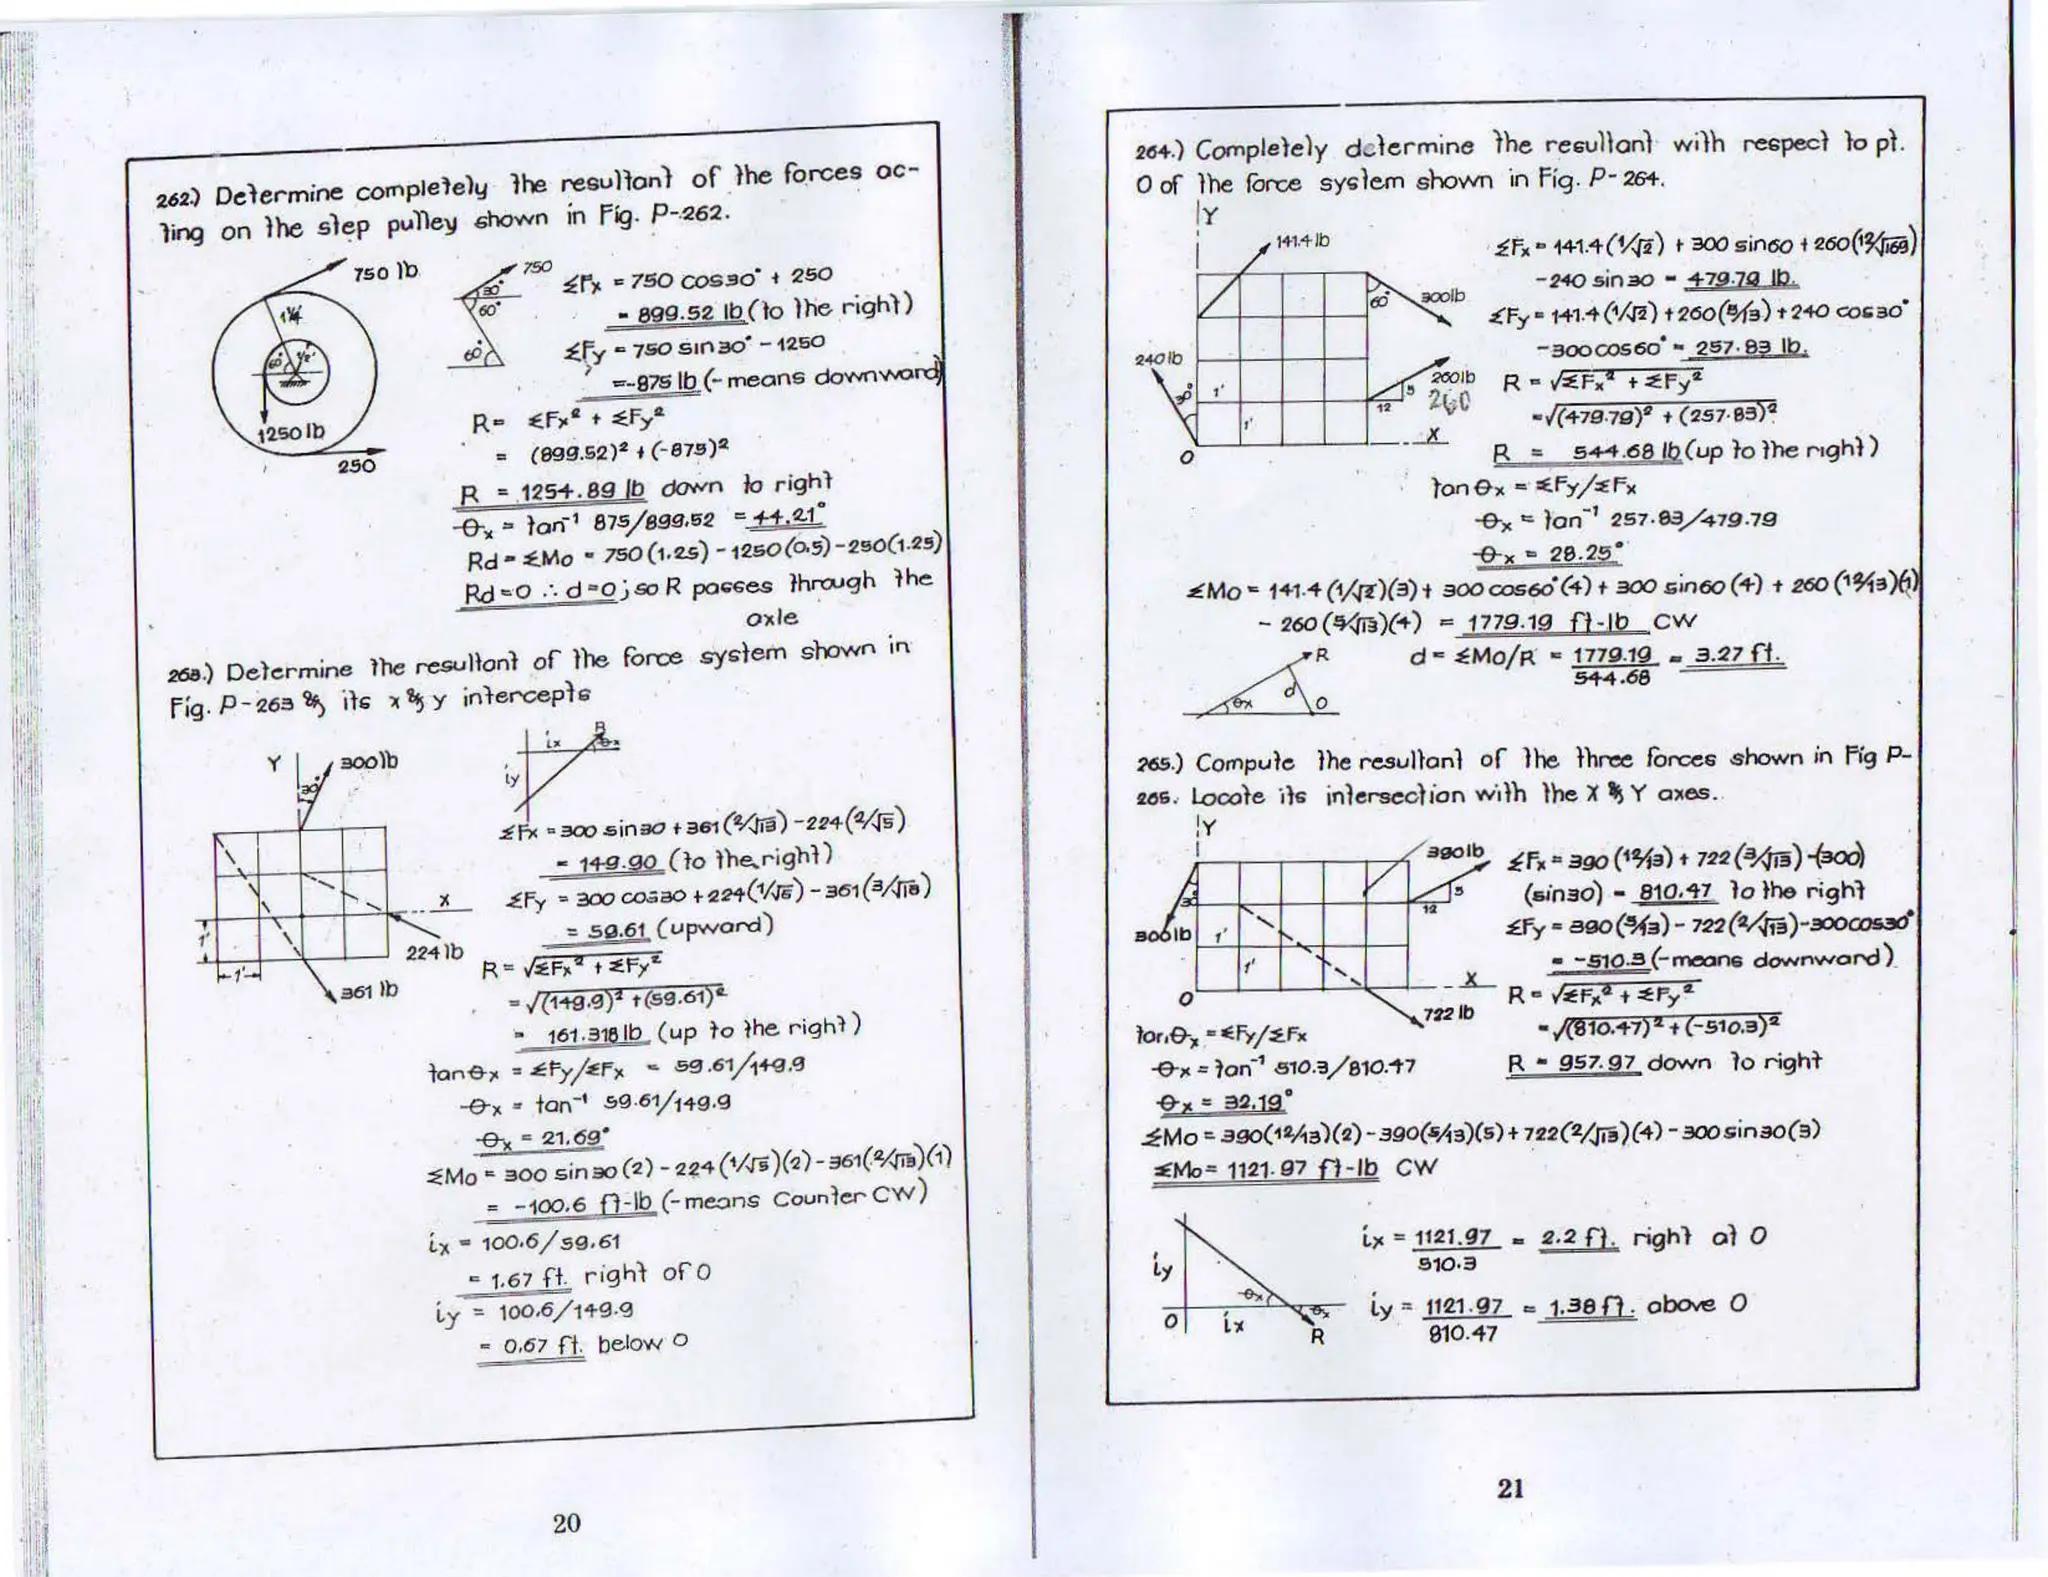 262.) Determine completely the resultant of the forces ac-
ting on the step pulley shown in Fig. P-262.
750 lb
1¼'
60°
½'
1250 lb
250
750
30°
60°
60°
ΣFx = 750 cos30° + 250
= 899.52 lb (to the right)
ΣFy = 750 sin30° - 1250
=-875 lb (- means downward)
R= ΣFx² + ΣFy²
= (899.52)² + (-875)²
R = 1254.89 lb down to right
θx = tan⁻¹ 875/899.52 = 44.21°
Rd = ΣMo = 750(1.25) - 1250(0.5) - 250(1.25)
Rd=0 ∴ d=0; so R passes through the
axle
263.) Determine the resultant of the force system shown in
Fig. P-263 & its x & y intercepts
Y
300 lb
30°
X
1'
1'
224 lb
361 lb
R
ix
θx
iy
ΣFx = 300 sin30 + 361(2/√13) - 224(2/√5)
= 149.90 (to the right)
ΣFy = 300 cos30 + 224(1/√5) - 361(3/√13)
= 59.61 (upward)
R= √ΣFx² + ΣFy²
= √(149.9)² + (59.61)²
= 161.318 lb (up to the right)
tanθx = ΣFy/ΣFx = 59.61/149.9
θx = tan⁻¹ 59.61/149.9
θx = 21.69°
ΣMo = 300 sin30(2) - 224(1/√5)(2) - 361(2/√13)(1)
= -100.6 ft-lb (- means Counter CW)
ix = 100.6/59.61
= 1.67 ft. right of O
iy = 100.6/149.9
= 0.67 ft. below O
20
264.) Completely determine the resultant with respect to pt.
O of the force system shown in Fig. P-264.
Y
141.4 lb
60°
300lb
240 lb
30°
1'
1'
260lb
260
5
12
X
O
ΣFx = 141.4(1/√2) + 300 sin60 + 260(12/√169)
-240 sin30 = 479.79 lb.
ΣFy = 141.4(1/√2) + 260(5/13) + 240 cos30°
-300cos60° = 257.83 lb.
R = √ΣFx² + ΣFy²
=√(479.79)² + (257.83)²
R = 544.68 lb (up to the right)
tanθx = ΣFy/ΣFx
θx = tan⁻¹ 257.83/479.79
θx = 28.25°
ΣMo = 141.4(1/√2)(3) + 300 cos60°(4) + 300 sin60(4) + 260(12/13)(1)
- 260(5/√13)(4) = 1779.19 ft-lb CW
R
d
θx
O
d = ΣMo/R = 1779.19 = 3.27 ft.
544.68
265.) Compute the resultant of the three forces shown in Fig P-
265. Locate its intersection with the X & Y axes.
Y
390lb
5
12
30°
300 lb
1'
1'
X
O
722 lb
ΣFx = 390(12/13) + 722(3/√13)-(300)
(sin30) = 810.47 to the right
ΣFy = 390(5/13) - 722(2/√13)-300cos30°
= -510.3 (-means downward)
R = √ΣFx² + ΣFy²
= √(810.47)² + (-510.3)²
R = 957.97 down to right
tanθx = ΣFy/ΣFx
θx = tan⁻¹ 510.3/810.47
θx = 32.19°
ΣMo = 390(12/13)(2) - 390(5/13)(5) + 722(2/√13)(4) - 300sin30(3)
ΣMo = 1121.97 ft-lb CW
iy
θx
θx
O
ix
R
ix = 1121.97 = 2.2 ft. right at O
510.3
iy = 1121.97 = 1.38 ft. above O
810.47
21